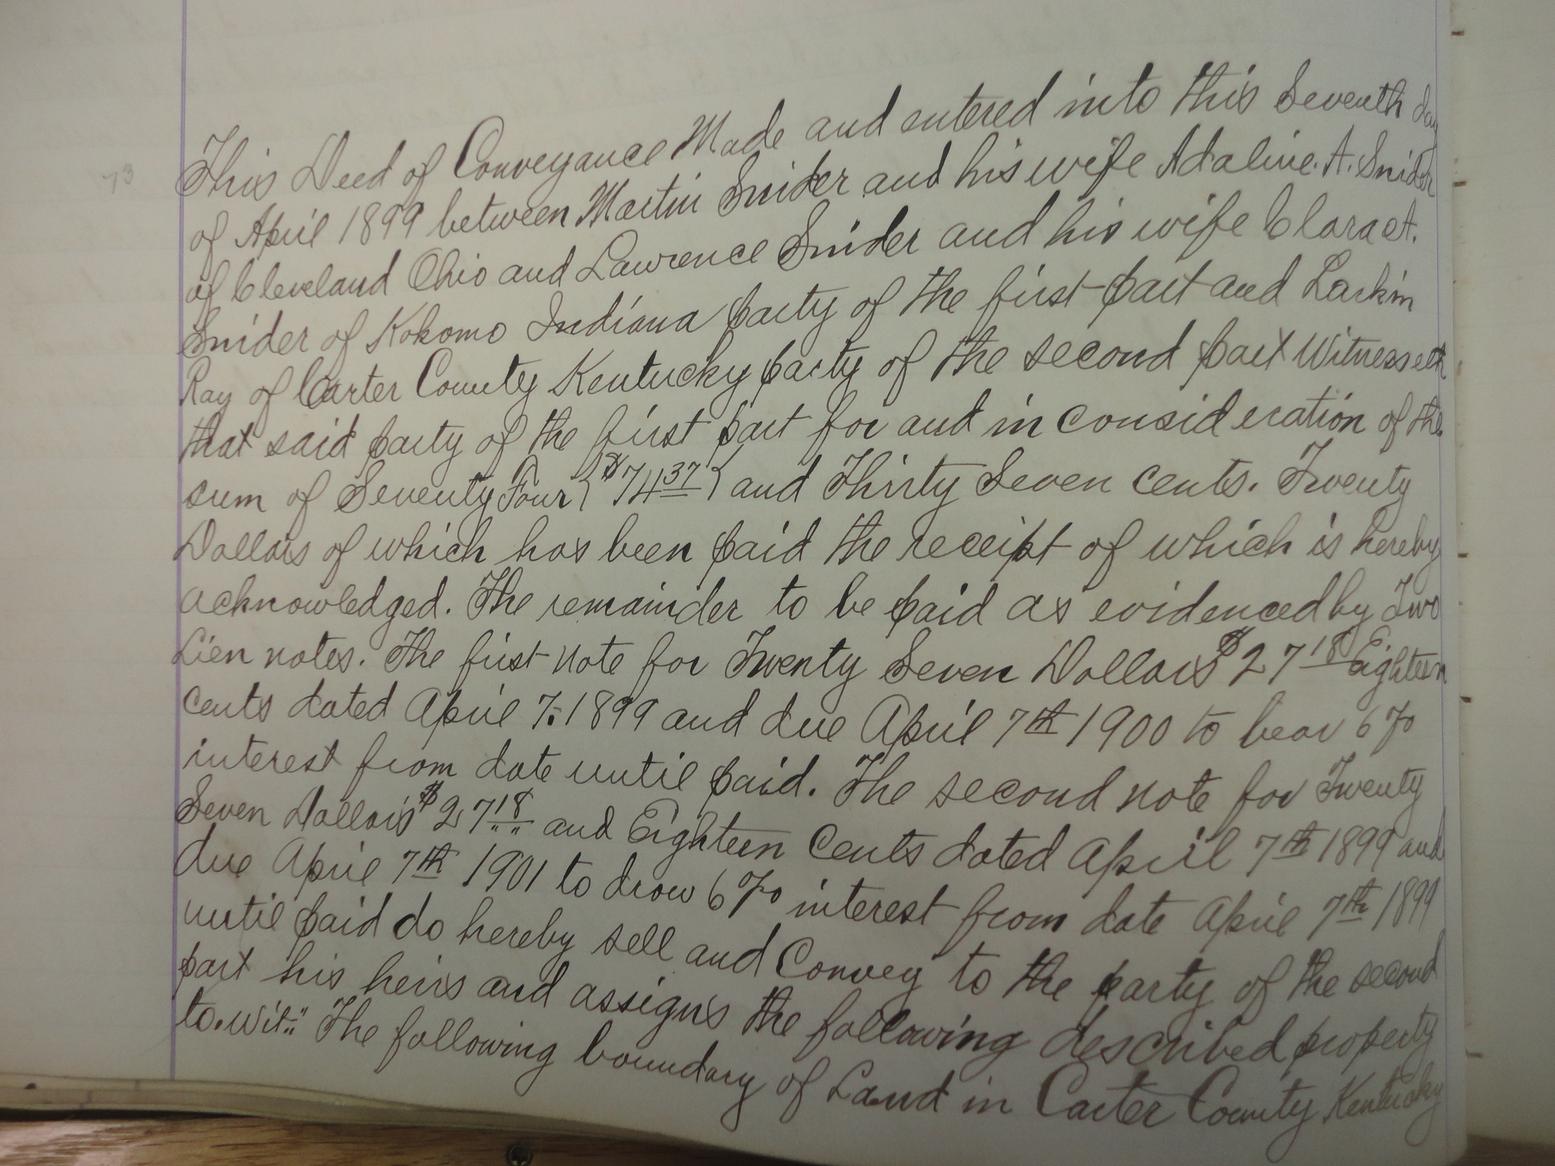 73
This Deed of Conveyance Made and entered into this Seventh day
of April 1899 between Martin Snider and his wife Adaline. A. Snider
of Cleveland Ohio and Lawrence Snider and his wife Clara A.
Snider of Kokomo Indiana party of the first part and Larkin
Ray of Carter County Kentucky party of the second part Witnesseth
that said party of the first part for and in consideration of the
sum of Seventy Four { $74 37 } and Thirty Seven cents. Twenty
Dollars of which has been paid the receipt of which is hereby
acknowledged. The remainder to be paid as evidenced by Two
Lien notes. The first note for Twenty Seven Dollars $27 18 Eighteen
cents dated April 7. 1899 and due April 7th 1900 to bear 6 %
interest from date until paid. The second note for Twenty
Seven Dollars $27 18 and Eighteen Cents dated April 7th 1899 and
due April 7th 1901 to drow 6 % interest from date April 7th 1899
until paid do hereby sell and Convey to the party of the second
part his heirs and assigns the following described property
to.wit:" The following boundary of Land in Carter County Kentucky